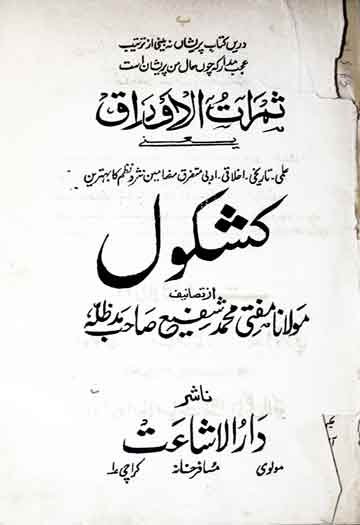 ب
دریں کتاب پریشاں نہ بینی از ترتیب
عجب مدار کہ چوں حال من پریشان است
ثمرات الاوراق
یعنی
علمی ۔ تاریخی ۔ اخلاقی ۔ ادبی متفرق مضامین نثر و نظم کا بہترین
کشکول
از تصانیف
مولانا مفتی محمد شفیع صاحب مدظلہ
ناشر
دارالاشاعت
مولوی مسافر خانہ کراچی ۱